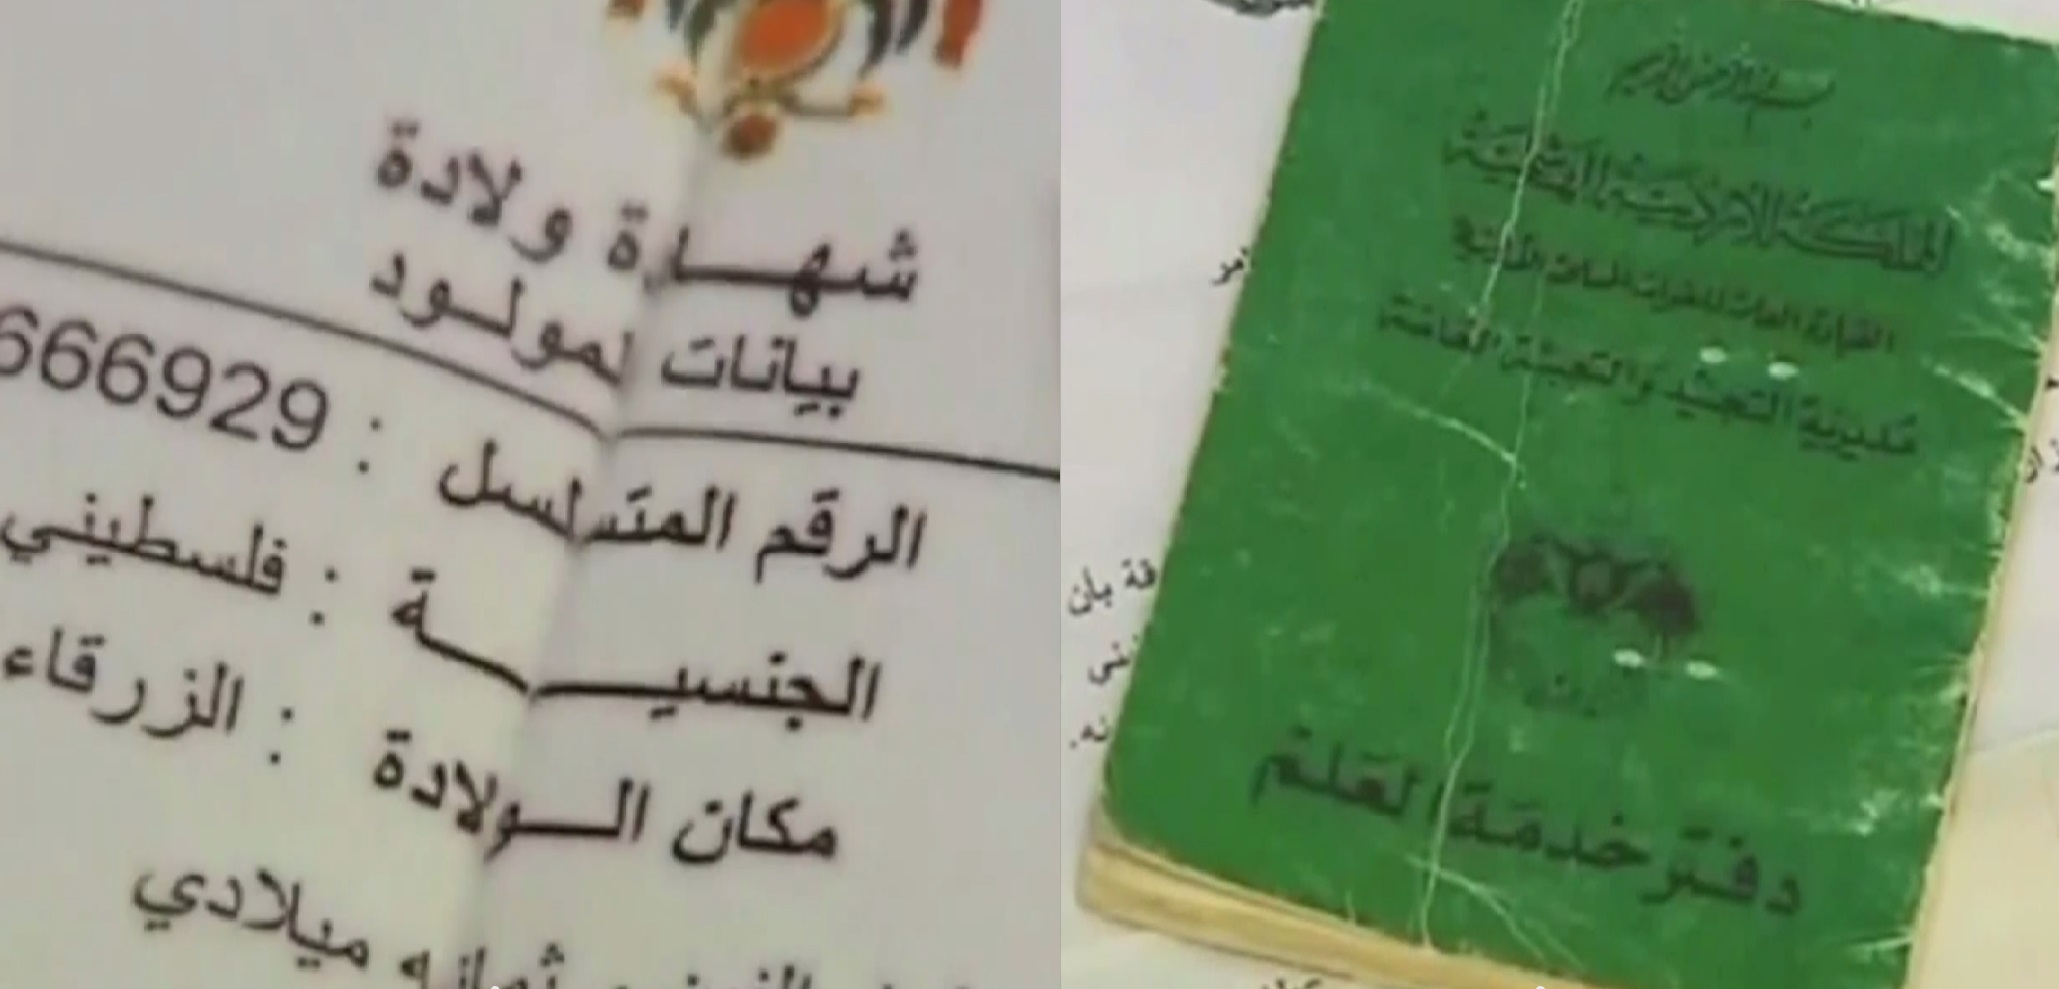 شهادة ولادة
بيانات المولود
الرقم المتسلسل : 666929
الجنسيـــة : فلسطيني
مكان الــولادة : الزرقاء
ميلادي
بسم الله الرحمن الرحيم
المملكة الأردنية الهاشمية
القيادة العامة للقوات المسلحة الأردنية
مديرية التجنيد والتعبئة العامة
دفتر خدمة العلم
قة بأن